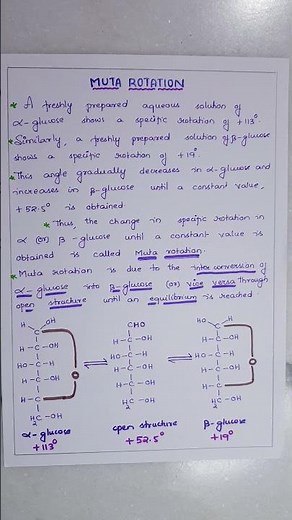 MUTA ROTATION
* A freshly prepared aqueous solution of
α-glucose shows a specific rotation of +113°
* Similarly, a freshly prepared solution of β-glucose
shows a specific rotation of +19°.
* This angle gradually decreases in α-glucose and
increases in β-glucose until a constant value,
+52.5° is obtained.
* Thus, the change in specific rotation in
α (or) β-glucose until a constant value is
obtained is called Muta rotation.
* Muta rotation is due to the inter conversion of
α-glucose into β-glucose (or) vice versa through
open structure until an equilibrium is reached
H OH CHO HO H
C C
H-C-OH H-C-OH H-C-OH
HO-C-H O ⇌ HO-C-H ⇌ HO-C-H O
H-C-OH H-C-OH H-C-OH
H-C H-C-OH H-C
H₂C-OH H₂C-OH H₂C-OH
α-glucose open structure β-glucose
+113° +52.5° +19°